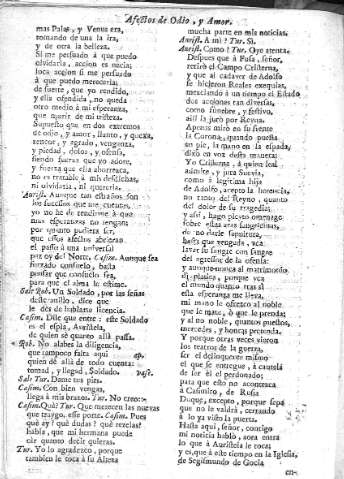 Afectos de Odio, y Amor.
mas Palas, y Venus era,
tomando de una la ira,
y de otra la belleza.
Si me persuado à que puedo
olvidarla, accion es necia;
loca accion si me persuado
à que puedo merecerla;
de suerte, que yo rendido,
y ella ofendida, no queda
otro medio à mi esperanza,
que morir de mi tristeza.
Supuesto que en dos extremos
de odio, y amor, llanto, y quexa,
temor, y agrado, venganza,
y piedad, dolor, y ofensa,
siendo fuerza que yo adore,
y fuerza que ella aborrezca,
no es tratable à mis desdichas,
ni olvidarla, ni quererla.
Aurist. Aunque tan estraños son
los sucessos que me cuentas,
yo no he de rendirme à que
mas esperanza no tengan:
por quanto pudiera ser,
que essos afectos abrieran
el passo à una universal
paz oy del Norte. Casim. Aunque sea
forzado consuelo, basta
pensar que consuelo sea,
para que el alma le estime.
Sale Rob. Un Soldado, por las señas
deste anillo, dice que
le dés de hablarte licencia.
Casim. Dile que entre: este Soldado
es el espia, Auristela,
de quien sé quanto allà passa.
Rob. No alabes la diligencia,
que tampoco falta aqui ap.
quien dè allà de todo cuenta:
tomad, y llegad, Soldado. vase.
Sale Tur. Dame tus pies.
Casim. Con bien vengas,
llega à mis brazos. Tur. No creo:-
Casim. Què? Tur. Que merezcan las nuevas
que traygo, esse porte. Casim. Pues
què ay? què dudas? què rezelas?
habla, que mi hermana puede
oir quanto decir quieras.
Tur. Yo lo agradezco, porque
tambien le toca à su Alteza
mucha parte en mis noticias.
Aurist. A mi? Tur. Sì.
Aurist. Como? Tur. Oye atenta.
Despues que à Fusa, señor,
retirè el Campo Cristerna,
y que al cadaver de Adolfo
se hicieron Reales exequias,
mezclando à un tiempo el Estado
dos acciones tan diversas,
como funebre, y festivo,
alli la jurò por Reyna.
Apenas mirò en su frente
la Corona, quando puesta
en pie, la mano en la espada,
dixo en voz desta manera:
Yo Cristerna, à quien leal
admite, y jura Suevia,
como à legitima hija
de Adolfo, acepto la herencia,
no tanto del Reyno, quanto
del dolor de su tragedia;
y assi, hago pleyto omenage
sobre estas aras sangrientas,
de no darle sepultura,
hasta que vengada, vea
lavar su sangre con sangre
del agressor de la ofensa:
y aunque nunca al matrimonio
me plazca, porque vea
el mundo quanto tras sì
esta esperanza me lleva,
mi mano le ofrezco al noble
que le mate, ò que le prenda;
y al no noble, quantos puestos,
mercedes, y honras pretenda.
Y porque otras veces vieron
los teatros de la guerra,
ser el delinquente mismo
el que se entregue, à cautela
de ser èl el perdonado;
para que esto no acontezca
à Casimiro, de Rusia
Duque, excepto, porque sepa
que no le valdrà, cerrando
à lo ya visto la puerta.
Hasta aqui, señor, contigo
mi noticia hablò, aora entra
lo que à Auristela le toca;
y es, que à este tiempo en la Iglesia,
de Segismundo de Gocia
en-